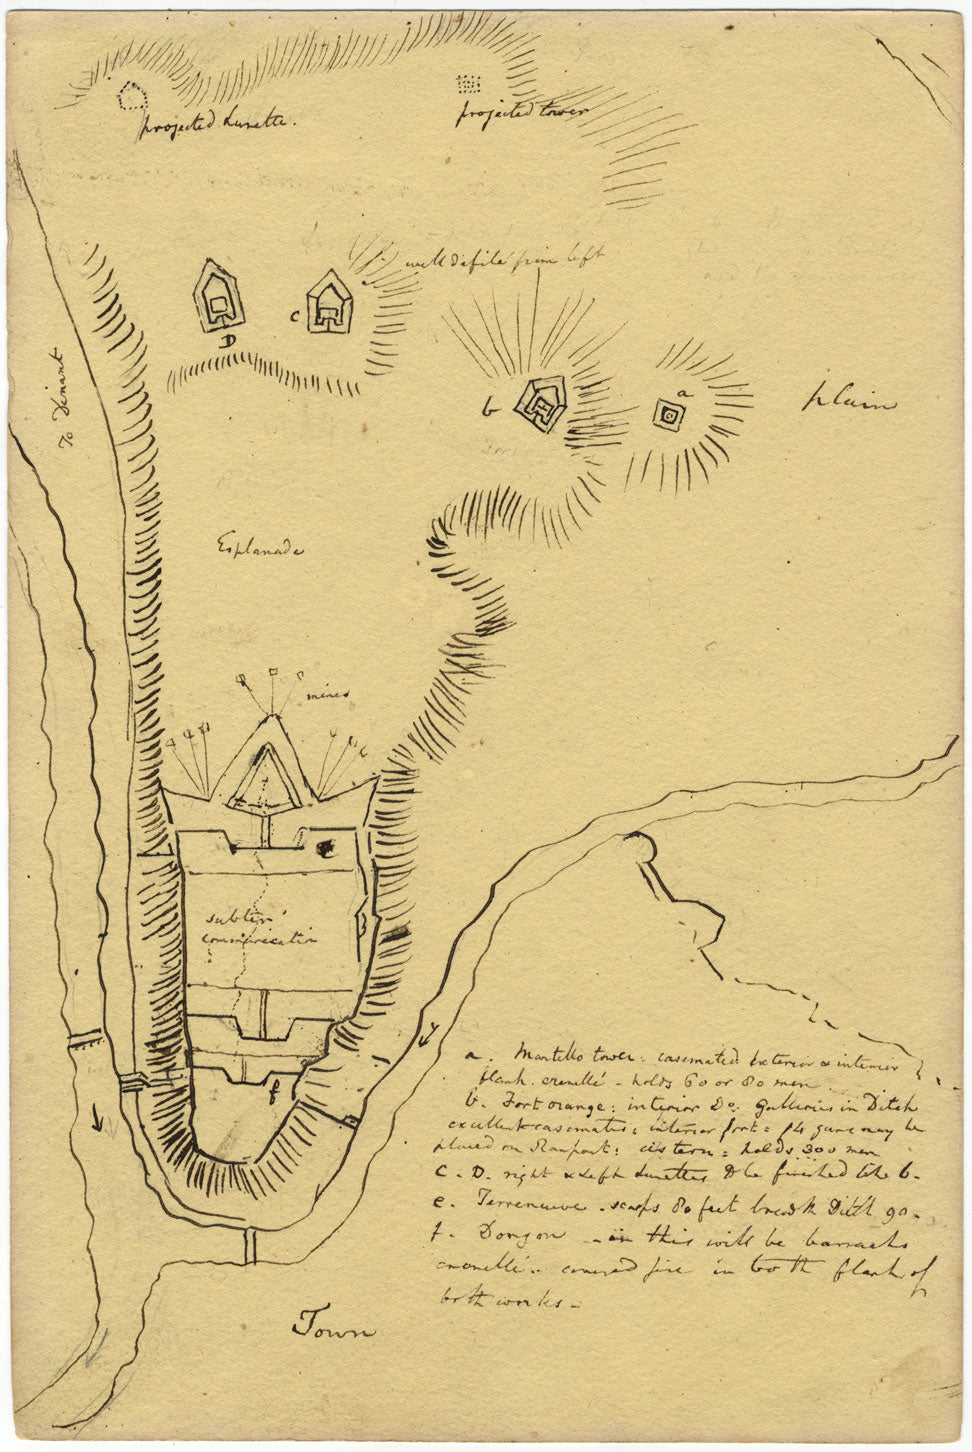 projected Lunette.
projected tower
well defilé from left
C
D
To Dinant
b
a
plain
Esplanade
mines
e
subterr:
communication
f
a. Martello tower. casemated exterior & interior
flank crenellé - holds 60 or 80 men
b. Fort orange: interior Do: Galleries in Ditch
excellent casemates: interior fort: 14 guns may be
placed on Rampart: cistern: holds 300 men
C. D. right & left Lunettes to be finished like b.
e. Terreneuve - scarps 80 feet breadth Ditch 90.
f. Donjon - in this will be barracks
crenellé. covered fire in to the flank of
both works -
Town